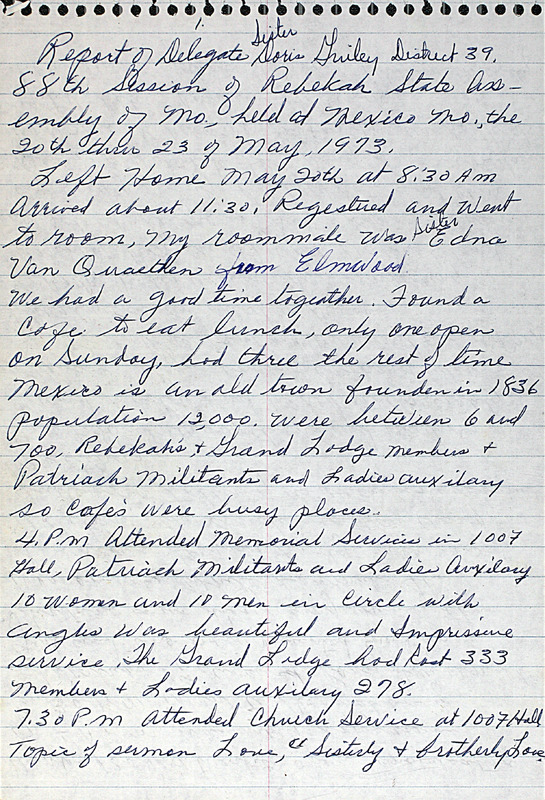 Sister
Report of Delegate Doris Griley District 39.
88th Session of Rebekah State Ass-
embly of Mo., held at Mexico Mo., the
20th thru 23 of May, 1973.
Left Home May 20th at 8:30 Am
Arrived about 11:30, Regestred and Went
to room, My roommate was Sister Edna
Van Quaethen from Elmwood.
We had a good time togeather. Found a
Cafe to eat lunch, only one open
on Sunday, had three the rest of time
Mexico is an old town founden in 1836
population 12,000. Were between 6 and
700, Rebekah's + Grand Lodge members +
Patriach Militants and Ladies auxilary
so Cafe's were busy places.
4. P.m Attended Memorial Services in 1007
Hall, Patriach Militants and Ladies Auxilary
10 Women and 10 Men in Circle with
Angles Was beautiful and Impressive
service, The Grand Lodge had Lost 333
Members + Ladies auxilary 278.
7.30 P.m Attended Church Service at 1007 Hall
Topic of sermon Love, Sisterly + brotherly Love